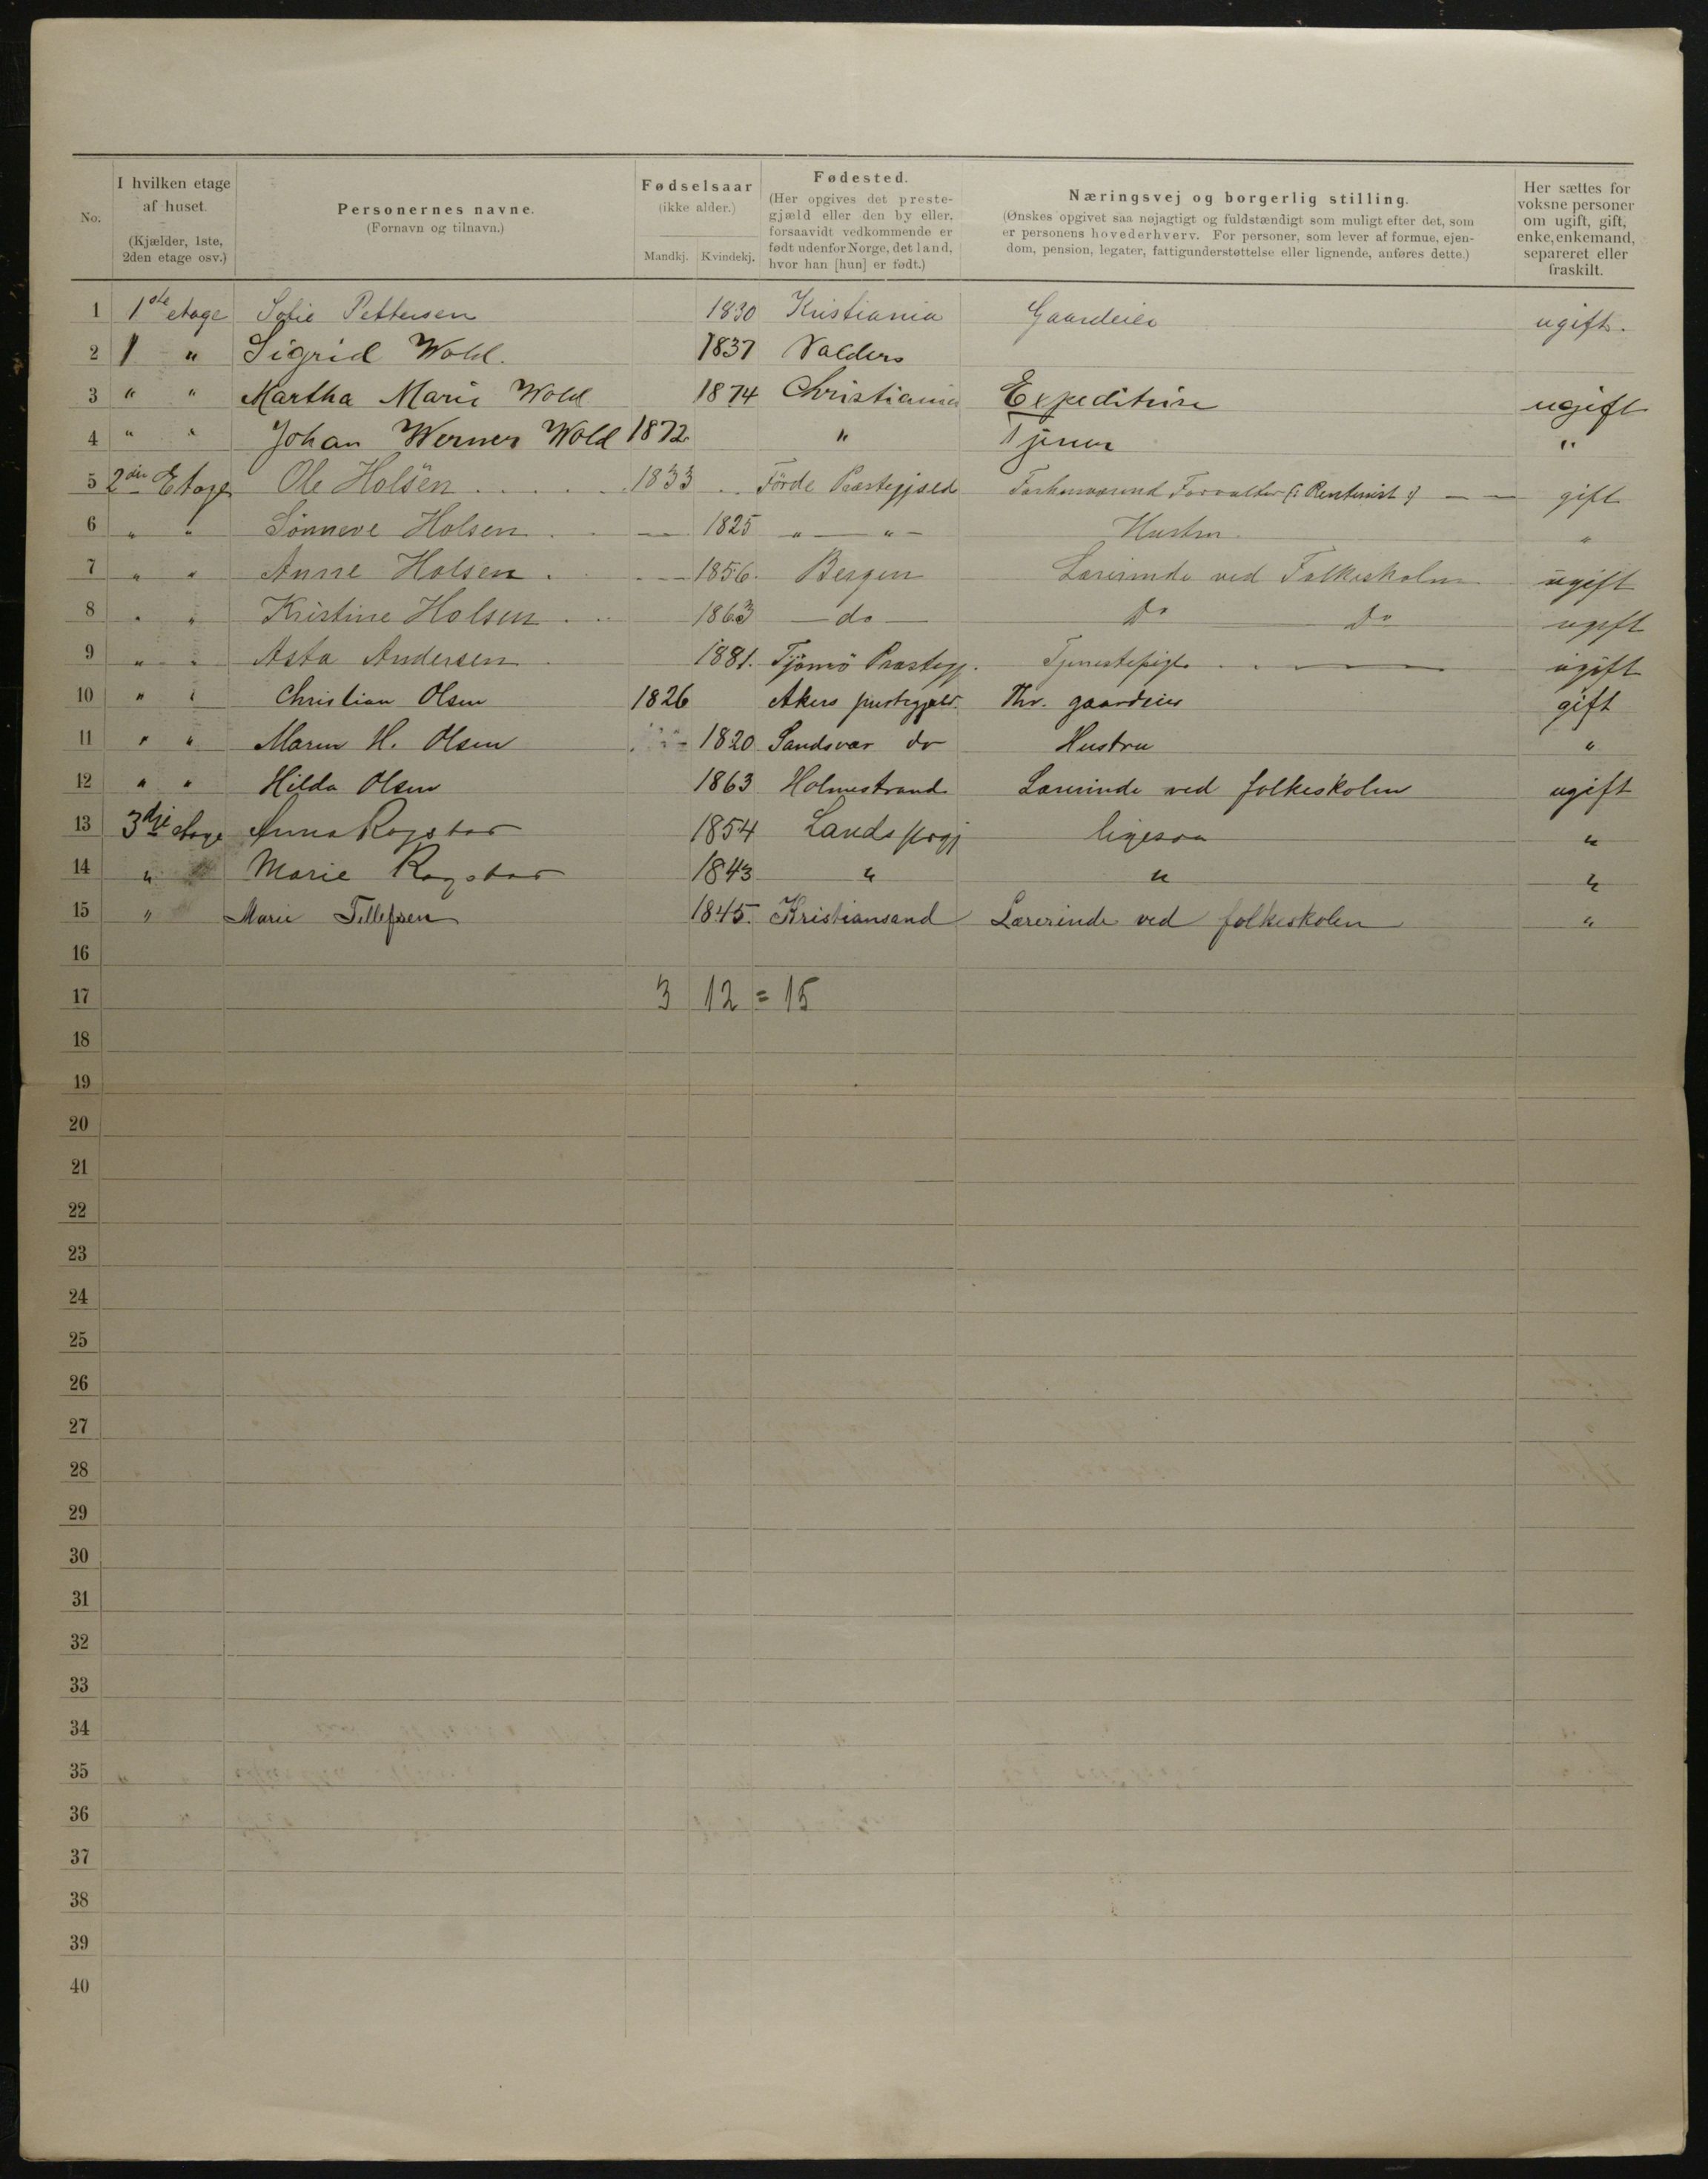 No.
I hvilken etage af huset. (Kjælder, 1ste, 2den etage osv.)
Personernes navne. (Fornavn og tilnavn.)
Fødselsaar (ikke alder.) Mandkj. Kvindekj.
Fødested. (Her opgives det prestegjæld eller den by eller, forsaavidt vedkommende er født udenfor Norge, det land, hvor han [hun] er født.)
Næringsvej og borgerlig stilling. (Ønskes opgivet saa nøjagtigt og fuldstændigt som muligt efter det, som er personens hovederhverv. For personer, som lever af formue, ejendom, pension, legater, fattigunderstøttelse eller lignende, anføres dette.)
Her sættes for voksne personer om ugift, gift, enke, enkemand, separeret eller fraskilt.
1 1ste etage Sofie Pettersen 1830 Kristiania Gaardeier ugift.
2 1 " Sigrid Wold. 1837 Valders
3 " " Martha Marie Wold 1874 Christiania Expeditrise ugift
4 " " Johan Werner Wold 1872 " Tjener "
5 2den Etage Ole Holsen 1833 Förde Præstegjæld Forhenværend Forvalter (: Rentenist :) gift
6 " " Sönneve Holsen 1825 " — " — Hustru "
7 " " Anne Holsen 1856. Bergen Lærerinde ved Folkeskolen ugift
8 " " Kristine Holsen 1863 — do — Do Do ugift
9 " " Asta Andersen 1881. Tjömö Præstegj. Tjenestepige ugift
10 " " Christian Olsen 1826 Akers prestegjæld. Fhv. gaardeier gift
11 " " Maren H. Olsen 1820 Sandsvær do Hustru "
12 " " Hilda Olsen 1863 Holmestrand Lærerinde ved folkeskolen ugift
13 3dje etage Anna Rogstad 1854 Lands prgj ligesaa "
14 " Marie Rogstad 1843 " " "
15 " Marie Tellefsen 1845. Kristiansand Lærerinde ved folkeskolen "
16
17 3 12 = 15
18
19
20
21
22
23
24
25
26
27
28
29
30
31
32
33
34
35
36
37
38
39
40